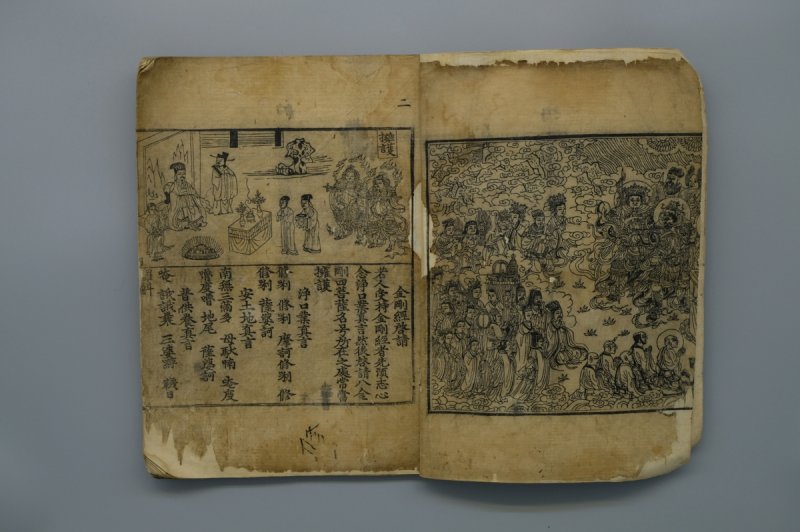 二
擁護
金剛經啓請
若人受持金剛經者先須志心
念淨口業真言然後啓請八金
剛四菩薩名号所在之處常當
擁護
淨口業真言
修唎 修唎 摩訶修唎 修
修唎 薩婆訶
安土地真言
南無三滿多 母馱喃 唵度
嚕度嚕 地尾 薩婆訶
普供養真言
唵 誐誐曩 三婆縛 襪日